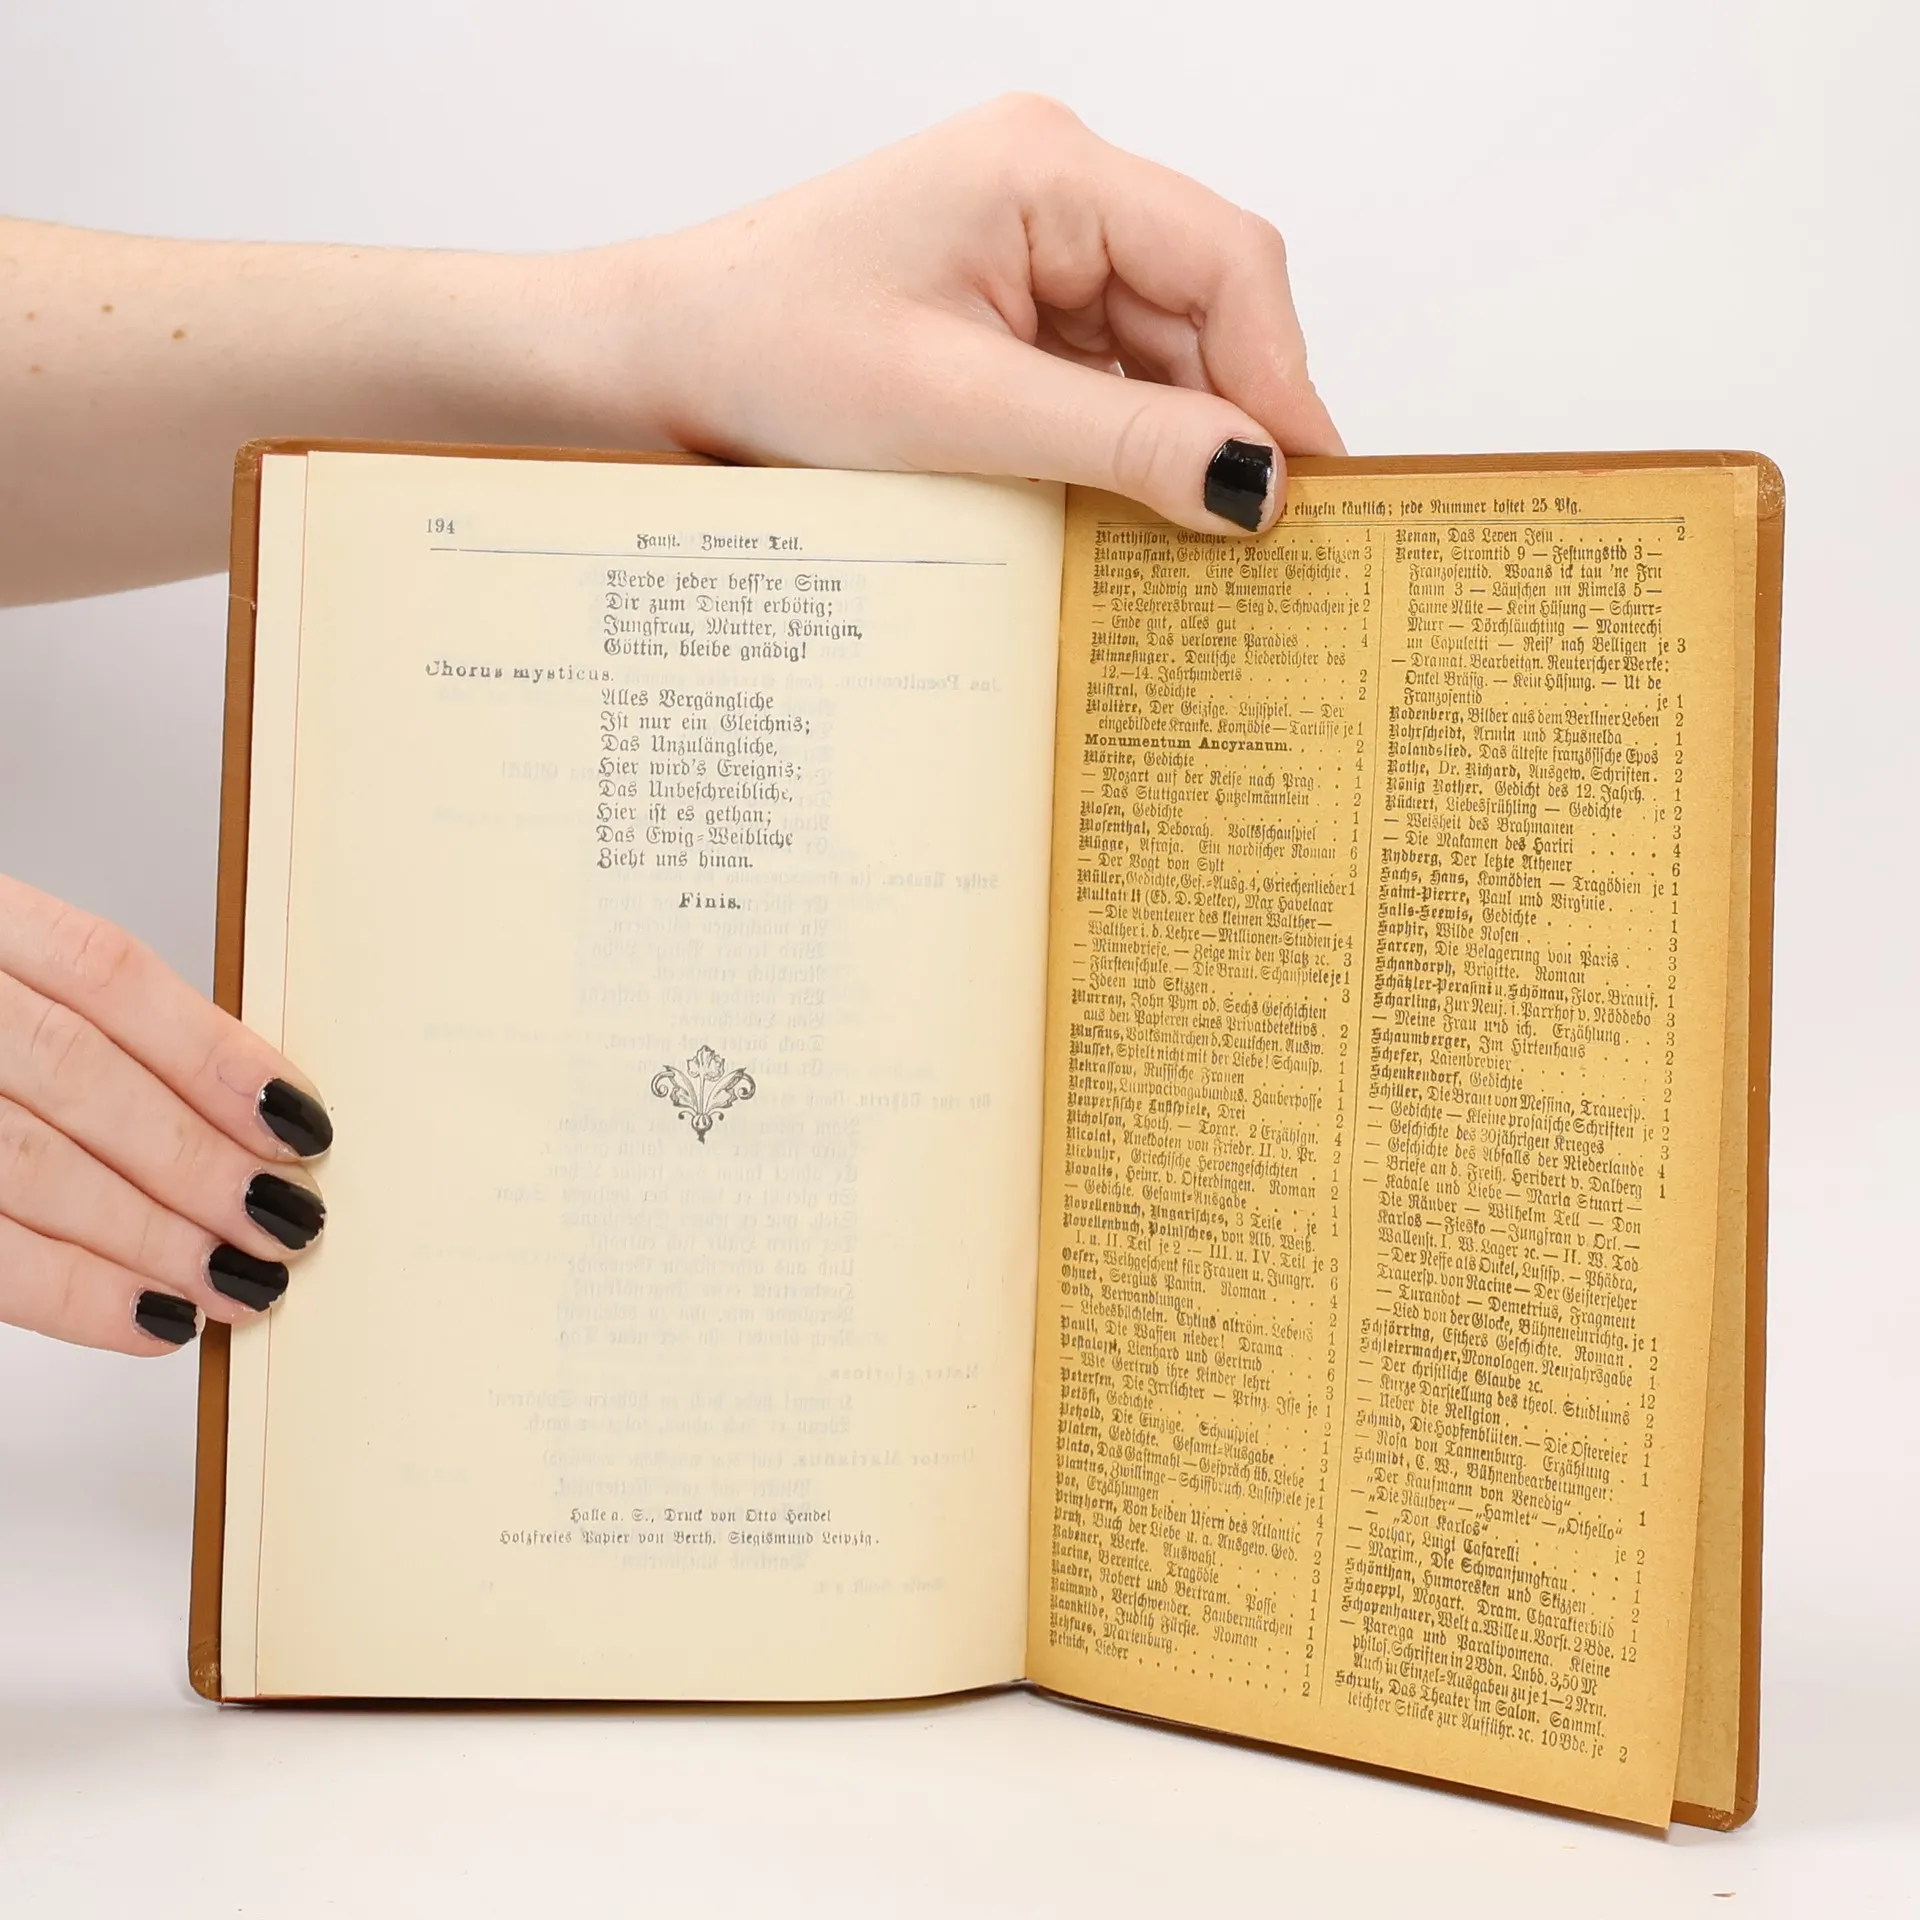 194
Faust. Zweiter Teil.
Werde jeder bess're Sinn
Dir zum Dienst erbötig;
Jungfrau, Mutter, Königin,
Göttin, bleibe gnädig!
Chorus mysticus.
Alles Vergängliche
Ist nur ein Gleichnis;
Das Unzulängliche,
Hier wird's Ereignis;
Das Unbeschreibliche,
Hier ist es gethan;
Das Ewig=Weibliche
Zieht uns hinan.
Finis.
Halle a. S., Druck von Otto Hendel
Holzfreies Papier von Berth. Siegismund Leipzig.
einzeln käuflich; jede Nummer kostet 25 Pfg.
Matthisson, Gedichte . . . . . . . . 1
Maupassant, Gedichte 1, Novellen u. Skizzen 3
Mengs, Karen. Eine Sylter Geschichte. 2
Meyr, Ludwig und Annemarie . . . 1
— Die Lehrersbraut — Sieg d. Schwachen je 2
— Ende gut, alles gut . . . . . . 1
Milton, Das verlorene Paradies . . . 4
Minnesinger. Deutsche Liederdichter des
12.—14. Jahrhunderts . . . . . . 2
Mistral, Gedichte . . . . . . . . 2
Molière, Der Geizige. Lustspiel. — Der
eingebildete Kranke. Komödie — Tartüffe je 1
Monumentum Ancyranum. . . . 2
Mörike, Gedichte . . . . . . . . 4
— Mozart auf der Reise nach Prag. . 1
— Das Stuttgarter Hutzelmännlein . . 2
Mosen, Gedichte . . . . . . . . 1
Mosenthal, Deborah. Volksschauspiel . 1
Mügge, Afraja. Ein nordischer Roman 6
— Der Vogt von Sylt . . . . . . 3
Müller, Gedichte, Ges.=Ausg. 4, Griechenlieder 1
Multatuli (Ed. D. Dekker), Max Havelaar
— Die Abenteuer des kleinen Walther —
Walther i. d. Lehre — Millionen=Studien je 4
— Minnebriefe. — Zeige mir den Platz ꝛc. 3
— Fürstenschule. — Die Braut. Schauspiele je 1
— Ideen und Skizzen. . . . . . . 3
Murray, John Pym od. Sechs Geschichten
aus den Papieren eines Privatdetektivs . 2
Musäus, Volksmärchen d. Deutschen. Ausw. 2
Musset, Spielt nicht mit der Liebe! Schausp. 1
Nekrassow, Russische Frauen . . . 1
Nestroy, Lumpacivagabundus. Zauberposse 1
Neupersische Lustspiele, Drei . . . . 2
Nicholson, Thoth. — Toxar. 2 Erzählgn. 4
Nicolai, Anekdoten von Friedr. II. v. Pr. 2
Niebuhr, Griechische Heroengeschichten . 1
Novalis, Heinr. v. Ofterdingen. Roman 2
— Gedichte. Gesamt=Ausgabe . . . . 1
Novellenbuch, Ungarisches, 3 Teile . je 1
Novellenbuch, Polnisches, von Alb. Weiß.
I. u. II. Teil je 2 — III. u. IV. Teil je 3
Oeser, Weihgeschenk für Frauen u. Jungfr. 6
Ohnet, Sergius Panin. Roman . . . 4
Ovid, Verwandlungen . . . . . . 2
— Liebesbüchlein. Cyklus altröm. Lebens 1
Pauli, Die Waffen nieder! Drama . . 2
Pestalozzi, Lienhard und Gertrud . . 6
— Wie Gertrud ihre Kinder lehrt . . 3
Petersen, Die Irrlichter — Prinz. Ilse je 1
Petöfi, Gedichte . . . . . . . . 2
Petzold, Die Einzige. Schauspiel . . . 1
Platen, Gedichte. Gesamt=Ausgabe . . 3
Plato, Das Gastmahl — Gespräch üb. Liebe 1
Plautus, Zwillinge — Schiffbruch. Lustspiele je 1
Poe, Erzählungen . . . . . . . 4
Prinzhorn, Von beiden Ufern des Atlantic 7
Prutz, Buch der Liebe u. a. Ausgew. Ged. 2
Rabener, Werke. Auswahl . . . . . 3
Racine, Berenice. Tragödie . . . . 1
Raeder, Robert und Bertram. Posse . 1
Raimund, Verschwender. Zaubermärchen 1
Raonhilde, Judith Fürste. Roman . . 2
Rehfues, Marienburg. . . . . . . 1
Reinick, Lieder . . . . . . . . 2
Renan, Das Leben Jesu . . . . . . 2
Reuter, Stromtid 9 — Festungstid 3 —
Franzosentid. Woans ick tau 'ne Fru
kamm 3 — Läuschen un Rimels 5 —
Hanne Nüte — Kein Hüsung — Schurr=
Murr — Dörchläuchting — Montecchi
un Capuletti — Reis' nah Belligen je 3
— Dramat. Bearbeitgn. Reuterscher Werke:
Onkel Bräsig. — Kein Hüsung. — Ut de
Franzosentid . . . . . . . . je 1
Rodenberg, Bilder aus dem Berliner Leben 2
Rohrscheidt, Armin und Thusnelda . . 1
Rolandslied. Das älteste französische Epos 2
Rothe, Dr. Richard, Ausgew. Schriften. 2
König Rother. Gedicht des 12. Jahrh. . 1
Rückert, Liebesfrühling — Gedichte . je 2
— Weisheit des Brahmanen . . . . 3
— Die Makamen des Hariri . . . . 4
Rydberg, Der letzte Athener . . . . 6
Sachs, Hans, Komödien — Tragödien je 1
Saint-Pierre, Paul und Virginie. . . 1
Salis-Seewis, Gedichte . . . . . . 1
Saphir, Wilde Rosen . . . . . . . 3
Sarcey, Die Belagerung von Paris . . 3
Schandorph, Brigitte. Roman . . . 2
Schätzler-Perasini u. Schönau, Flor. Brautf. 1
Scharling, Zur Neuj. i. Parrhof v. Nöddebo 3
— Meine Frau und ich. Erzählung . . 3
Schaumberger, Im Hirtenhaus . . . 2
Schefer, Laienbrevier . . . . . . 3
Schenkendorf, Gedichte . . . . . . 2
Schiller, Die Braut von Messina, Trauersp. 1
— Gedichte — Kleine prosaische Schriften je 2
— Geschichte des 30jährigen Krieges . 3
— Geschichte des Abfalls der Niederlande 4
— Briefe an d. Freih. Heribert v. Dalberg 1
— Kabale und Liebe — Maria Stuart —
Die Räuber — Wilhelm Tell — Don
Karlos — Fiesko — Jungfrau v. Orl. —
Wallenst. I. W. Lager ꝛc. — II. W. Tod
— Der Neffe als Onkel, Lustsp. — Phädra,
Trauersp. von Racine — Der Geisterseher
— Turandot — Demetrius, Fragment
— Lied von der Glocke, Bühneneinrichtg. je 1
Schjörring, Esthers Geschichte. Roman . 2
Schleiermacher, Monologen. Neujahrsgabe 1
— Der christliche Glaube ꝛc. . . . . 12
— Kurze Darstellung des theol. Studiums 2
— Ueber die Religion . . . . . . 3
Schmid, Die Hopfenblüten. — Die Ostereier 1
— Rosa von Tannenburg. Erzählung . 1
Schmidt, C. W., Bühnenbearbeitungen:
„Der Kaufmann von Venedig“ . . . 1
— „Die Räuber“ — „Hamlet“ — „Othello“
— „Don Karlos“ . . . . . . je 2
— Lothar, Luigi Cafarelli . . . . . 1
— Maxim., Die Schwanjungfrau . . . 1
Schönthan, Humoresken und Skizzen . . 2
Schoeppl, Mozart. Dram. Charakterbild 1
Schopenhauer, Welt a. Wille u. Vorst. 2 Bde. 12
— Parerga und Paralipomena. Kleine
philos. Schriften in 2 Bdn. Lnbd. 3,50 M
Auch in Einzel=Ausgaben zu je 1—2 Nrn.
Schrutz, Das Theater im Salon. Samml.
leichter Stücke zur Aufführ. ꝛc. 10 Bde. je 2